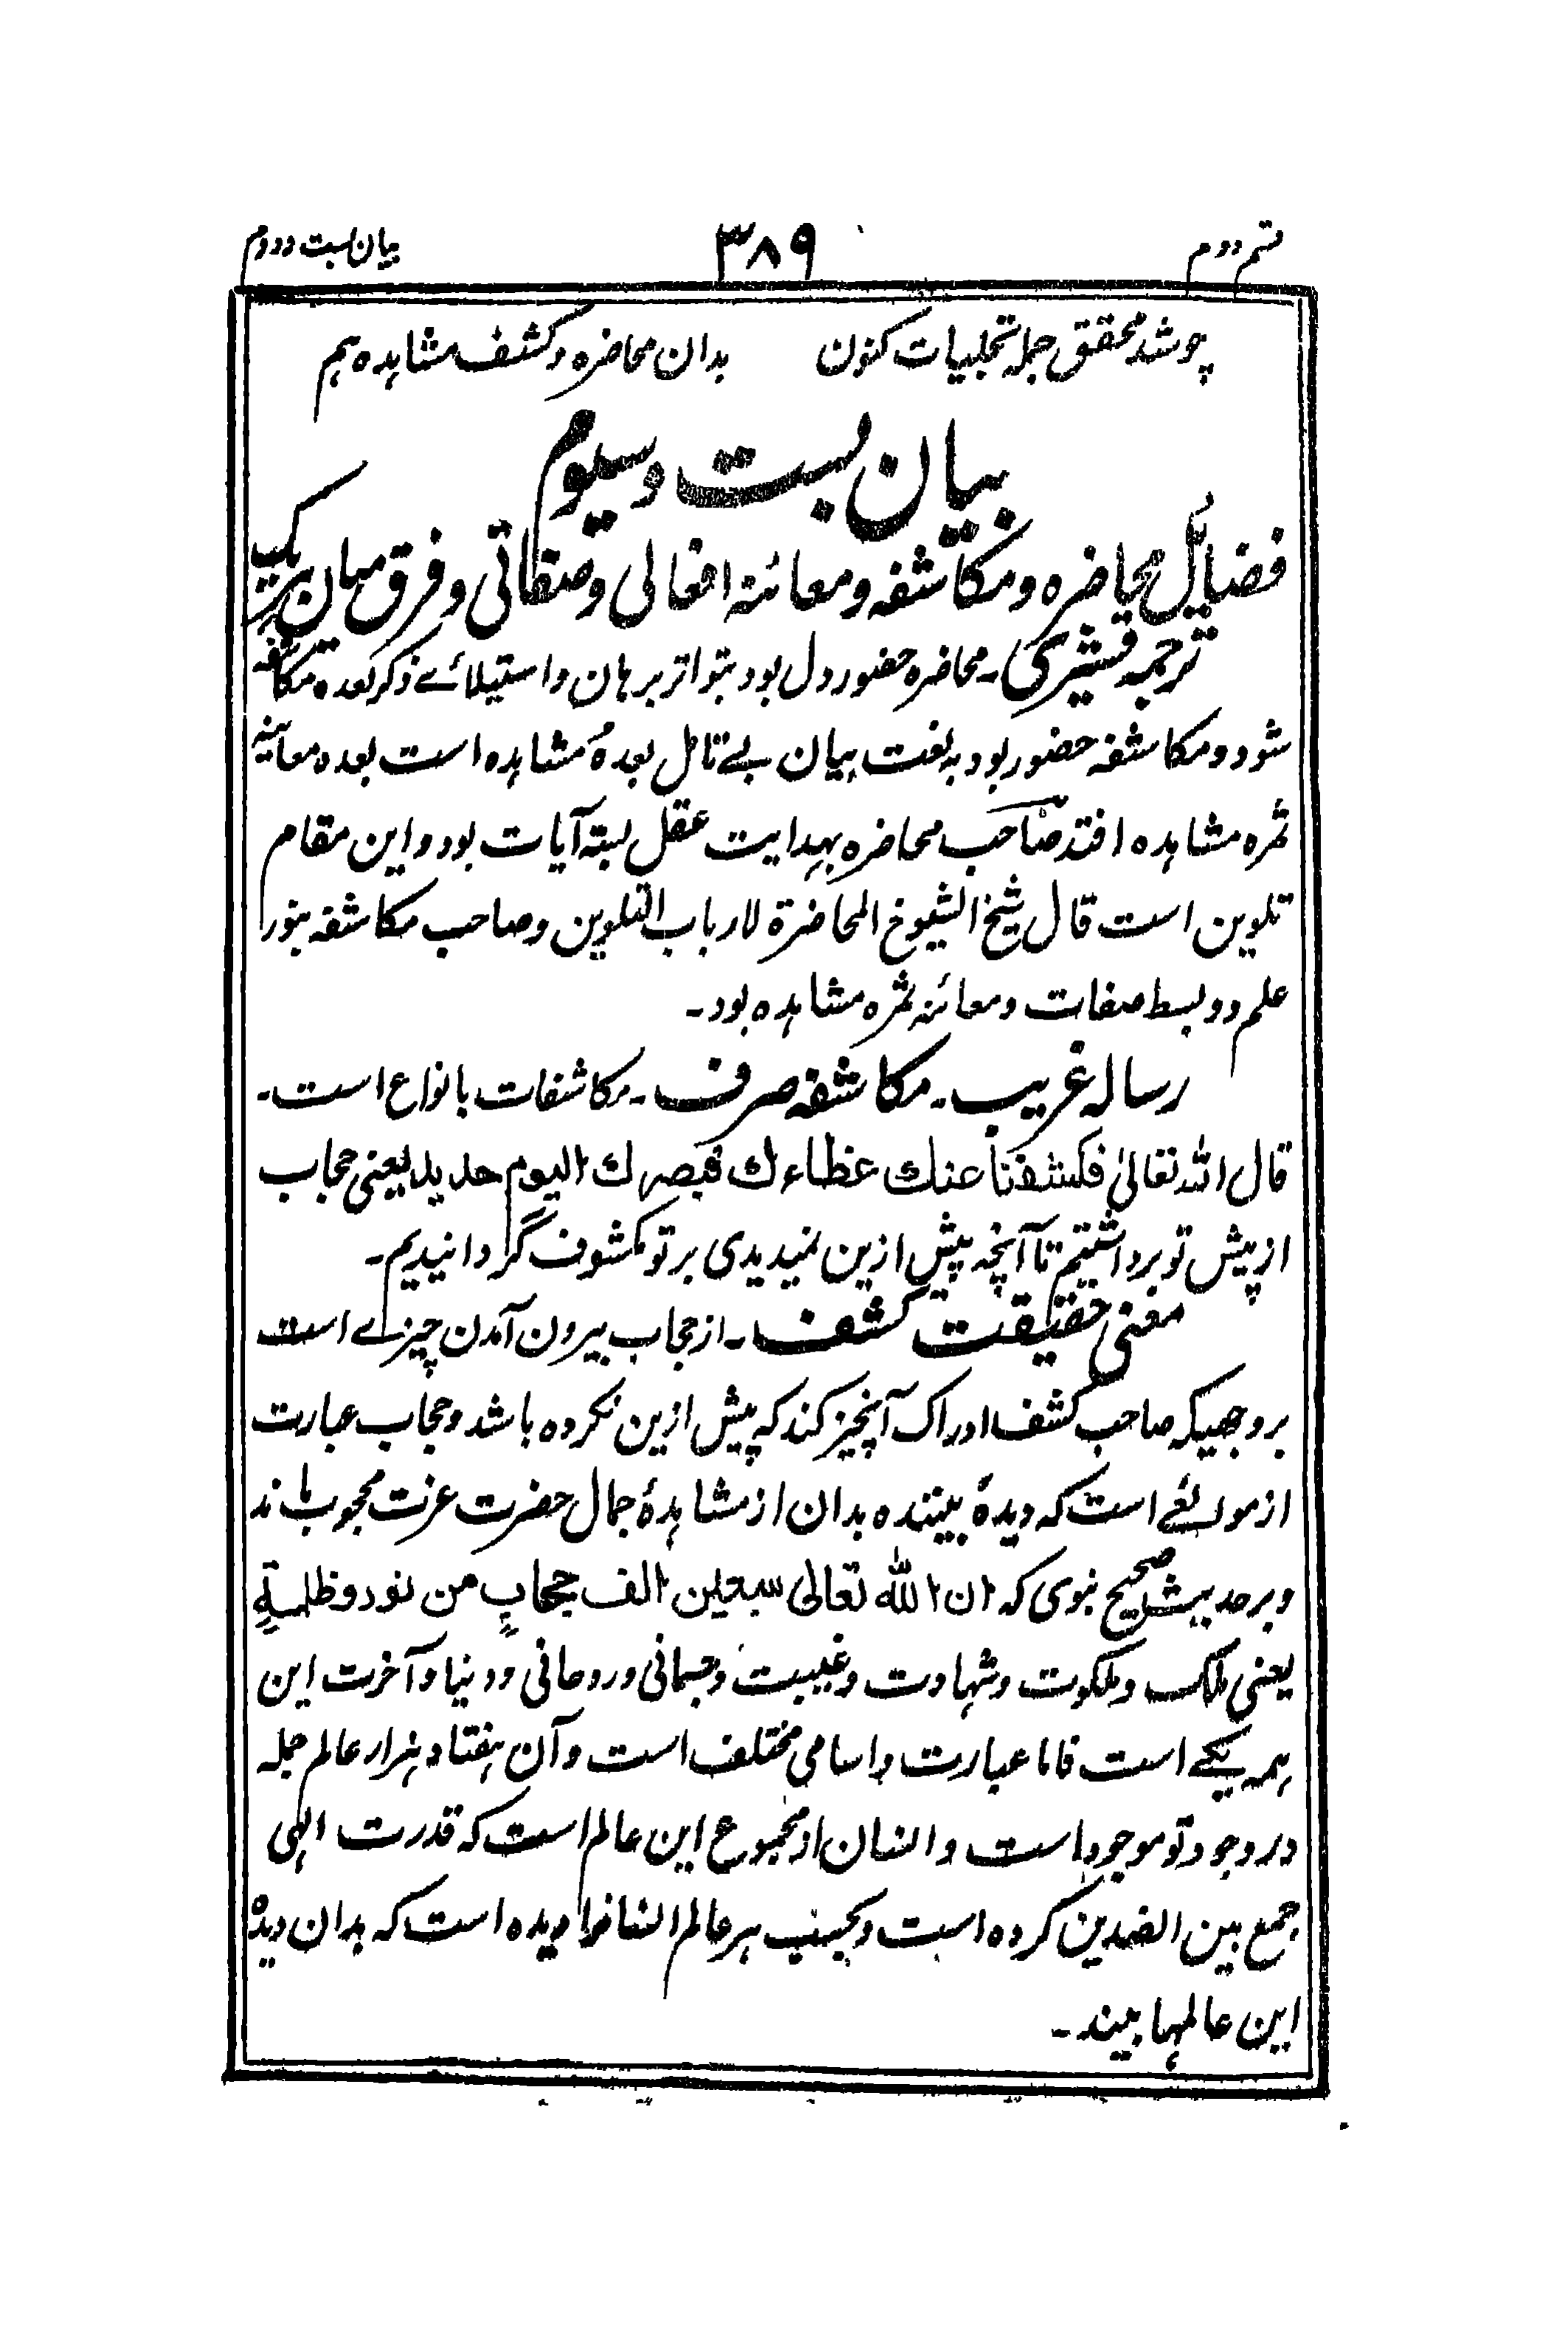 قسم دوم ۳۸۹ بیان بست و دوم
چو شد محقق جمله تجلیات کنون بدان محاضره و کشف مشاهده هم
بیان بست و سیوم
فضایل محاضره و مکاشفه و معائنه افعالی و صفاتی و فرق میان هر یک
ترجمه قشیری ۔ محاضره حضور دل بود بتواتر برهان و استیلائے ذکر بعده مکاشفه
شود و مکاشفه حضور بود به نعت بیان بے تامل بعدهٔ مشاهده است بعده معائینه
ثمره مشاهده افتد صاحب محاضره بهدایت عقل بسته آیات بود و این مقام
تلوین است قال شیخ الشیوخ المحاضرة لارباب التلوین و صاحب مکاشفه بنور
علم و و بسط صفات و معائنه ثمره مشاهده بود ۔
رساله غریب ۔ مکاشفه صرف ۔ مکاشفات بانواع است ۔
قال الله تعالیٰ فکشفنا عنك غطاءك فبصرك الیوم حدید یعنی حجاب
از پیش تو برداشتیم تا آنچه پیش ازین نمیدیدی بر تو مکشوف گردانیدیم ۔
معنی حقیقت کشف ۔ از حجاب بیرون آمدن چیزے است
بروجهیکه صاحب کشف ادراک آنچیز کند که پیش ازین نکرده باشد و حجاب عبارت
از موانعے است که دیدهٔ بیننده بدان از مشاهدهٔ جمال حضرت عزت محجوب ماند
و بر حدیث صحیح نبوی که ان الله تعالی سبعین الف حجابٍ من نور و ظلمةٍ
یعنی ملک و ملکوت و شهادت و غیبت و جسمانی و روحانی و دنیا و آخرت این
همه یکے است فاما عبارت و اسامی مختلف است و آن هفتاد هزار عالم جمله
در وجود تو موجود است و انسان از مجموع این عالم است که قدرت الهی
جمع بین الضدین کرده است و بحسب هر عالم انسانرا دیده است که بدان دیدهٔ
این عالمها بیند ۔